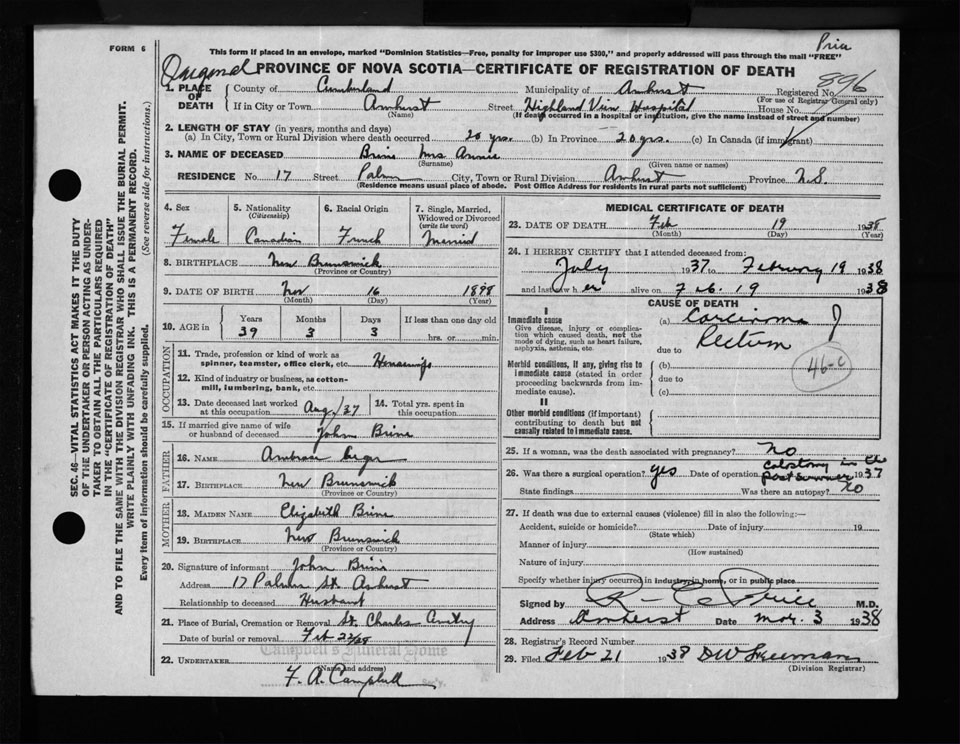 FORM 6
This form if placed in an envelope, marked "Dominion Statistics—Free, penalty for improper use $300," and properly addressed will pass through the mail "FREE"
Original PROVINCE OF NOVA SCOTIA—CERTIFICATE OF REGISTRATION OF DEATH
896
1. PLACE OF DEATH County of Cumberland Municipality of Amherst Registered No.
(For use of Registrar General only)
If in City or Town Amherst Street Highland View Hospital House No.
(Name) (If death occurred in a hospital or institution, give the name instead of street and number)
2. LENGTH OF STAY (in years, months and days)
(a) In City, Town or Rural Division where death occurred 20 yrs. (b) In Province 20 yrs. (c) In Canada (if immigrant)
3. NAME OF DECEASED Brine Mrs Annie
(Surname) (Given name or names)
RESIDENCE No. 17 Street Palmer City, Town or Rural Division Amherst Province N.S.
(Residence means usual place of abode. Post Office Address for residents in rural parts not sufficient)
4. Sex Female
5. Nationality (Citizenship) Canadian
6. Racial Origin French
7. Single, Married, Widowed or Divorced (write the word) Married
8. BIRTHPLACE New Brunswick
(Province or Country)
9. DATE OF BIRTH Nov 16 1898
(Month) (Day) (Year)
10. AGE in Years Months Days If less than one day old
39 3 3 hrs. or min.
OCCUPATION
11. Trade, profession or kind of work as spinner, teamster, office clerk, etc. Housewife
12. Kind of industry or business, as cotton-mill, lumbering, bank, etc.
13. Date deceased last worked at this occupation Aug/37 14. Total yrs. spent in this occupation.
15. If married give name of wife or husband of deceased John Brine
FATHER
16. NAME Ambrose
17. BIRTHPLACE New Brunswick
(Province or Country)
MOTHER
18. MAIDEN NAME Elizabeth Brine
19. BIRTHPLACE New Brunswick
(Province or Country)
20. Signature of informant John Brine
Address 17 Palmer St Amherst
Relationship to deceased Husband
21. Place of Burial, Cremation or Removal St. Charles
Date of burial or removal Feb 22/38
Campbell's Funeral Home
22. UNDERTAKER
(Name and address)
F. A. Campbell
MEDICAL CERTIFICATE OF DEATH
23. DATE OF DEATH Feb 19 1938
(Month) (Day) (Year)
24. I HEREBY CERTIFY that I attended deceased from:
July 1937 to February 19 1938
and last saw her alive on Feb. 19 1938
CAUSE OF DEATH
I
Immediate cause
Give disease, injury or complication which caused death, not the mode of dying, such as heart failure, asphyxia, asthenia, etc.
(a) Carcinoma of
Rectum
due to
46-c
Morbid conditions, if any, giving rise to immediate cause (stated in order proceeding backwards from immediate cause).
(b)
due to
(c)
II
Other morbid conditions (if important) contributing to death but not causally related to immediate cause.
25. If a woman, was the death associated with pregnancy? No
26. Was there a surgical operation? Yes Date of operation Colostomy in the past summer 1937
State findings Was there an autopsy? No
27. If death was due to external causes (violence) fill in also the following:—
Accident, suicide or homicide? Date of injury 19
(State which)
Manner of injury
(How sustained)
Nature of injury
Specify whether injury occurred in industry, in home, or in public place
Signed by R. C. Price M.D.
Address Amherst Date Mar. 3 1938
28. Registrar's Record Number
29. Filed Feb 21 1938 DW Freeman
(Division Registrar)
SEC. 46—VITAL STATISTICS ACT MAKES IT THE DUTY
OF THE UNDERTAKER OR PERSON ACTING AS UNDER-
TAKER TO OBTAIN ALL THE PARTICULARS REQUIRED
IN THE "CERTIFICATE OF REGISTRATION OF DEATH"
AND TO FILE THE SAME WITH THE DIVISION REGISTRAR WHO SHALL ISSUE THE BURIAL PERMIT.
WRITE PLAINLY WITH UNFADING INK. THIS IS A PERMANENT RECORD.
Every item of information should be carefully supplied. (See reverse side for instructions.)